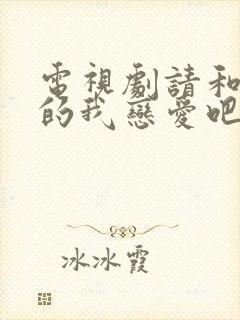 電視劇請和
的我戀愛吧
冰冰霞